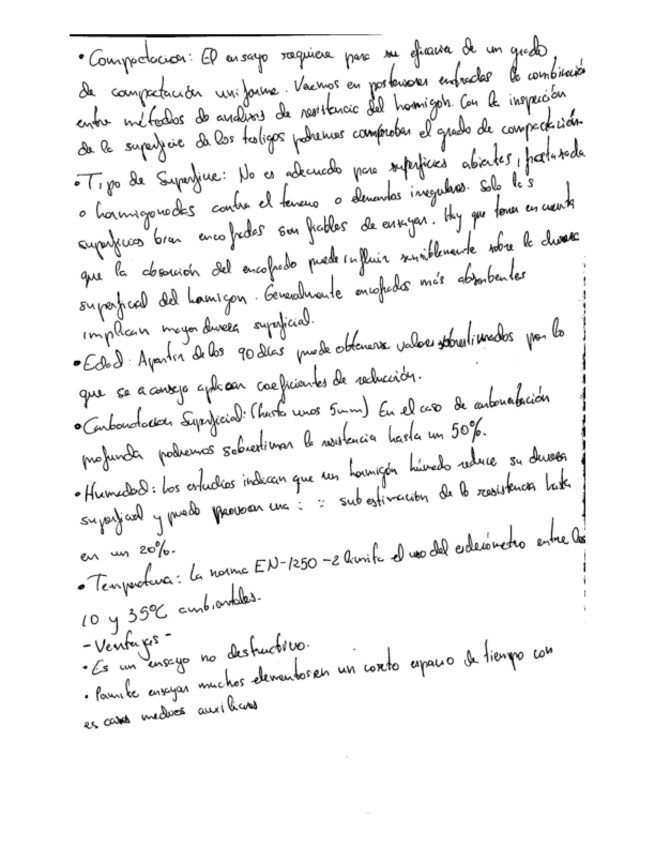 • Compactacion: El ensayo requiere para su eficacia de un grado
de compactación uniforme. Veremos en posteriores entradas la combinación
entre métodos de analisis de resistencia del hormigón. Con la inspección
de la superficie de los testigos podremos comprobar el grado de compactación.
• Tipo de Superficie: No es adecuado para superficies abiertas, fratasada
o hormigonadas contra el terreno o elementos irregulares. Solo las
superficies bien encofradas son fiables de ensayar. Hay que tener en cuenta
que la absorción del encofrado puede influir sensiblemente sobre la dureza
superficial del hormigon. Generalmente encofrados más absorbentes
implican mayor dureza superficial.
• Edad: Apartir de los 90 días puede obtenerse valores sobrestimados por lo
que se aconseja aplicar coeficientes de reducción.
• Carbonatacion Superficial: (hasta unos 5mm) En el caso de carbonatación
profunda podremos sobrestimar la resistencia hasta un 50%.
• Humedad: Los estudios indican que un hormigón húmedo reduce su dureza
superficial y puede provocar una subestimación de la resistencia hasta
en un 20%.
• Temperatura: La norma EN-1250-2 limita el uso del esclerómetro entre los
10 y 35ºC ambientales.
- Ventajas -
• Es un ensayo no destructivo.
• Permite ensayar muchos elementos en un corto espacio de tiempo con
escasos medios auxiliares